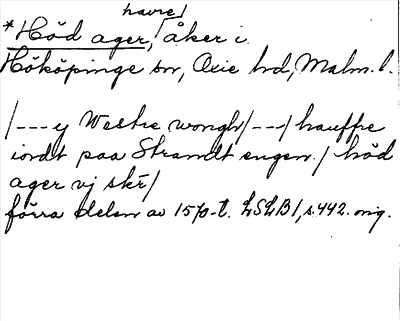 havre/
*Höd ager, / åker i
Hököpinge sn, Oxie hd, Malm. l.
/---ey Westre wongh/---/ hauffre
iordt paa Strandt engen./ höd
ager vj skr̄/
förra delen av 1570-t. LSLB1, s. 442. orig.